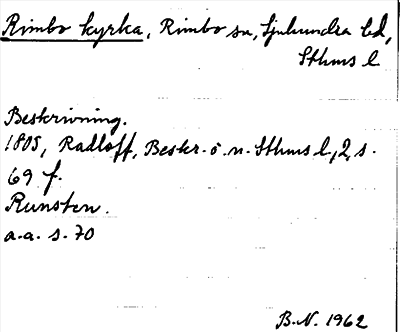 Rimbo kyrka, Rimbo sn, Sjuhundra hd,
Sthms l
Beskrivning.
1805, Radloff, Beskr. ö. n. Sthms l, 2, s.
69 f.
Runsten.
a.a. s. 70
B.N. 1962